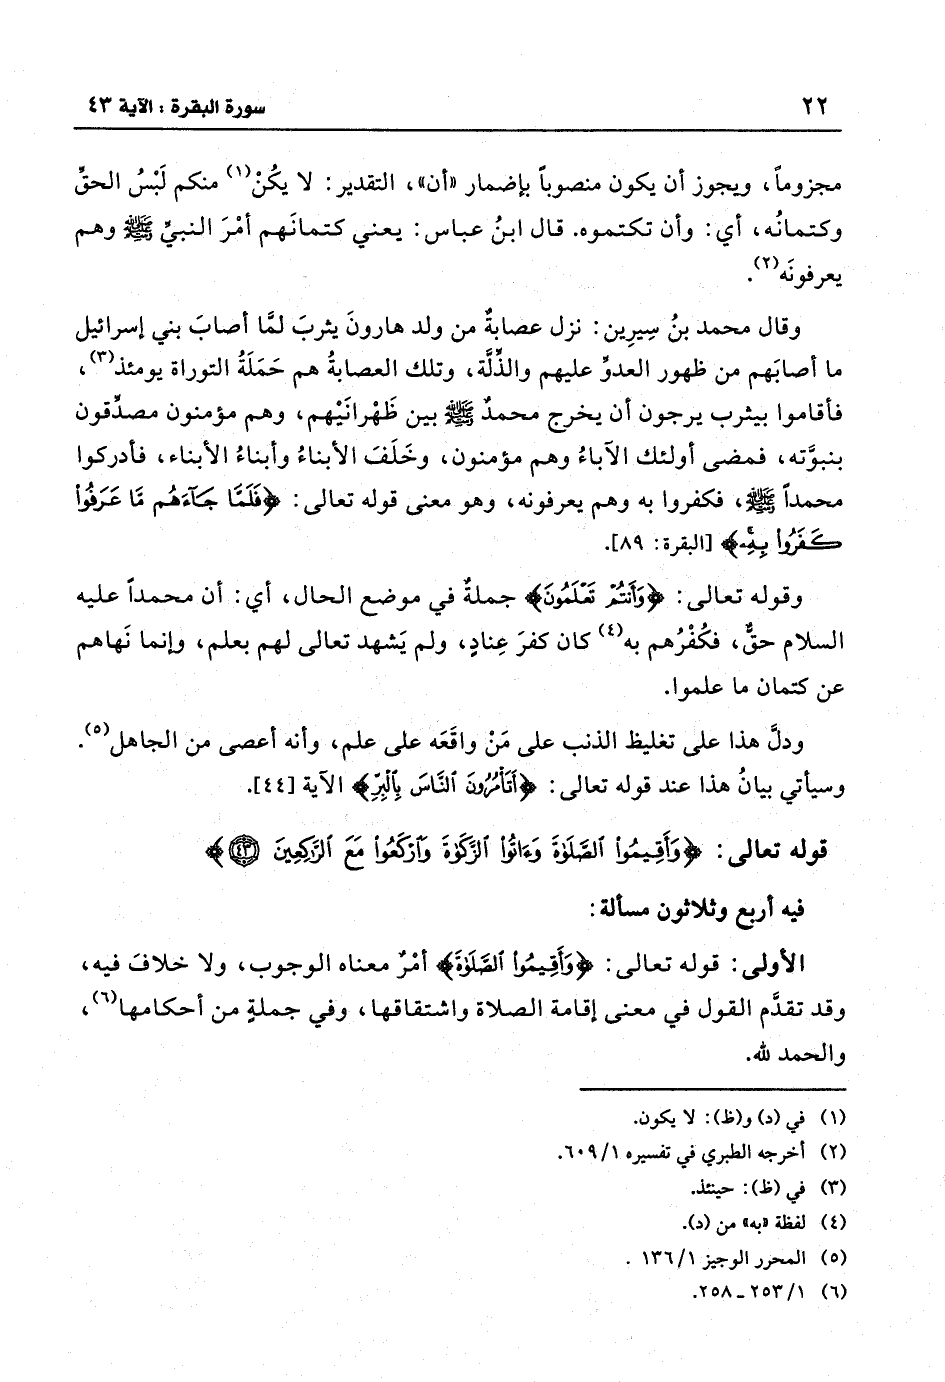 ٢٢
سورة البقرة : الآية ٤٣
مجزوماً، ويجوز أن يكون منصوباً بإضمار «أن»، التقدير: لا يكُنْ(١) منكم لَبْسُ الحقِّ
وكتمانُه، أي: وأن تكتموه. قال ابنُ عباس: يعني كتمانَهم أمْرَ النبيِّ ﷺ وهم
يعرفونَه(٢).
وقال محمد بنُ سِيرِين: نزل عصابةٌ من ولد هارونَ يثربَ لمَّا أصابَ بني إسرائيل
ما أصابَهم من ظهور العدوِّ عليهم والذِّلَّة، وتلك العصابةُ هم حَمَلَةُ التوراة يومئذ(٣)،
فأقاموا بيثرب يرجون أن يخرج محمدٌ ﷺ بين ظَهْرانَيْهم، وهم مؤمنون مصدِّقون
بنبوَّته، فمضى أولئك الآباءُ وهم مؤمنون، وخَلَفَ الأبناءُ وأبناءُ الأبناء، فأدركوا
محمداً ﷺ، فكفروا به وهم يعرفونه، وهو معنى قوله تعالى: ﴿فَلَمَّا جَآءَهُم مَّا عَرَفُوا۟
كَفَرُوا۟ بِهِۦ﴾ [البقرة: ٨٩].
وقوله تعالى: ﴿وَأَنتُمْ تَعْلَمُونَ﴾ جملةٌ في موضع الحال، أي: أن محمداً عليه
السلام حقٌّ، فكُفْرُهم به(٤) كان كفرَ عِنادٍ، ولم يَشهد تعالى لهم بعلم، وإنما نَهاهم
عن كتمان ما علموا.
ودلَّ هذا على تغليظ الذنب على مَنْ واقَعَه على علم، وأنه أعصى من الجاهل(٥).
وسيأتي بيانُ هذا عند قوله تعالى: ﴿أَتَأْمُرُونَ ٱلنَّاسَ بِٱلْبِرِّ﴾ الآية [٤٤].
قوله تعالى: ﴿وَأَقِيمُوا۟ ٱلصَّلَوٰةَ وَءَاتُوا۟ ٱلزَّكَوٰةَ وَٱرْكَعُوا۟ مَعَ ٱلرَّٰكِعِينَ ٤٣﴾
فيه أربع وثلاثون مسألة:
الأولى: قوله تعالى: ﴿وَأَقِيمُوا۟ ٱلصَّلَوٰةَ﴾ أمْرٌ معناه الوجوب، ولا خلافَ فيه،
وقد تقدَّم القول في معنى إقامة الصلاة واشتقاقها، وفي جملةٍ من أحكامها(٦)،
والحمد لله.
(١) في (د) و(ظ): لا يكون.
(٢) أخرجه الطبري في تفسيره ١/ ٦٠٩.
(٣) في (ظ): حينئذ.
(٤) لفظة «به» من (د).
(٥) المحرر الوجيز ١/ ١٣٦ .
(٦) ١/ ٢٥٣ ـ ٢٥٨.